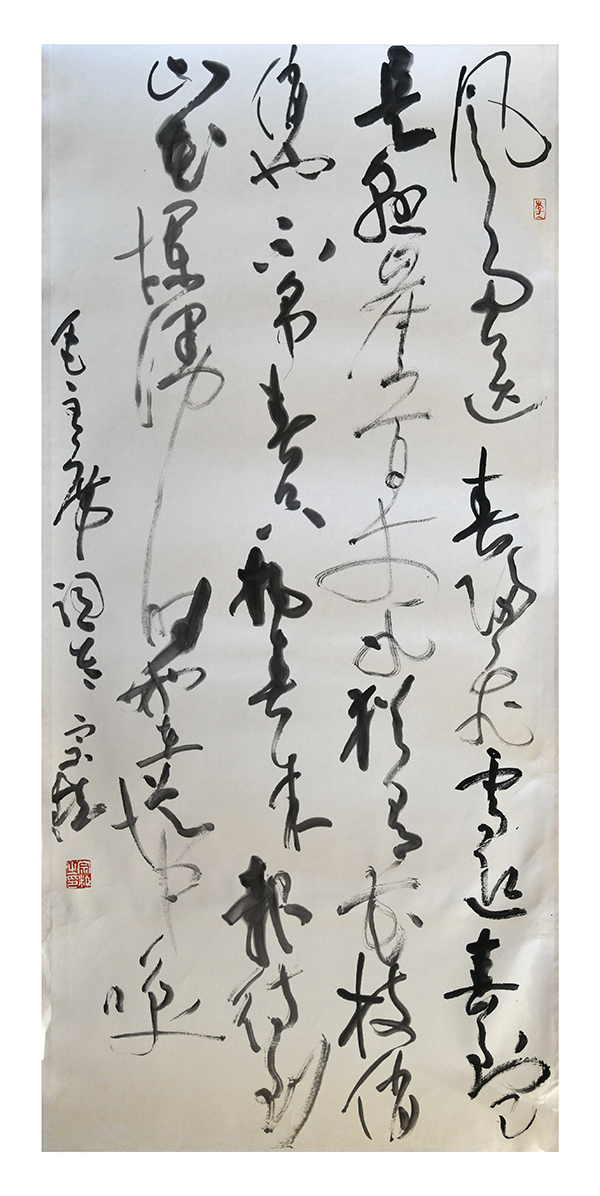 风雨送春归飞雪迎春到已
是悬崖百丈冰犹有花枝俏
俏也不争春只把春来报待到
山花烂漫时她在丛中笑
毛主席词